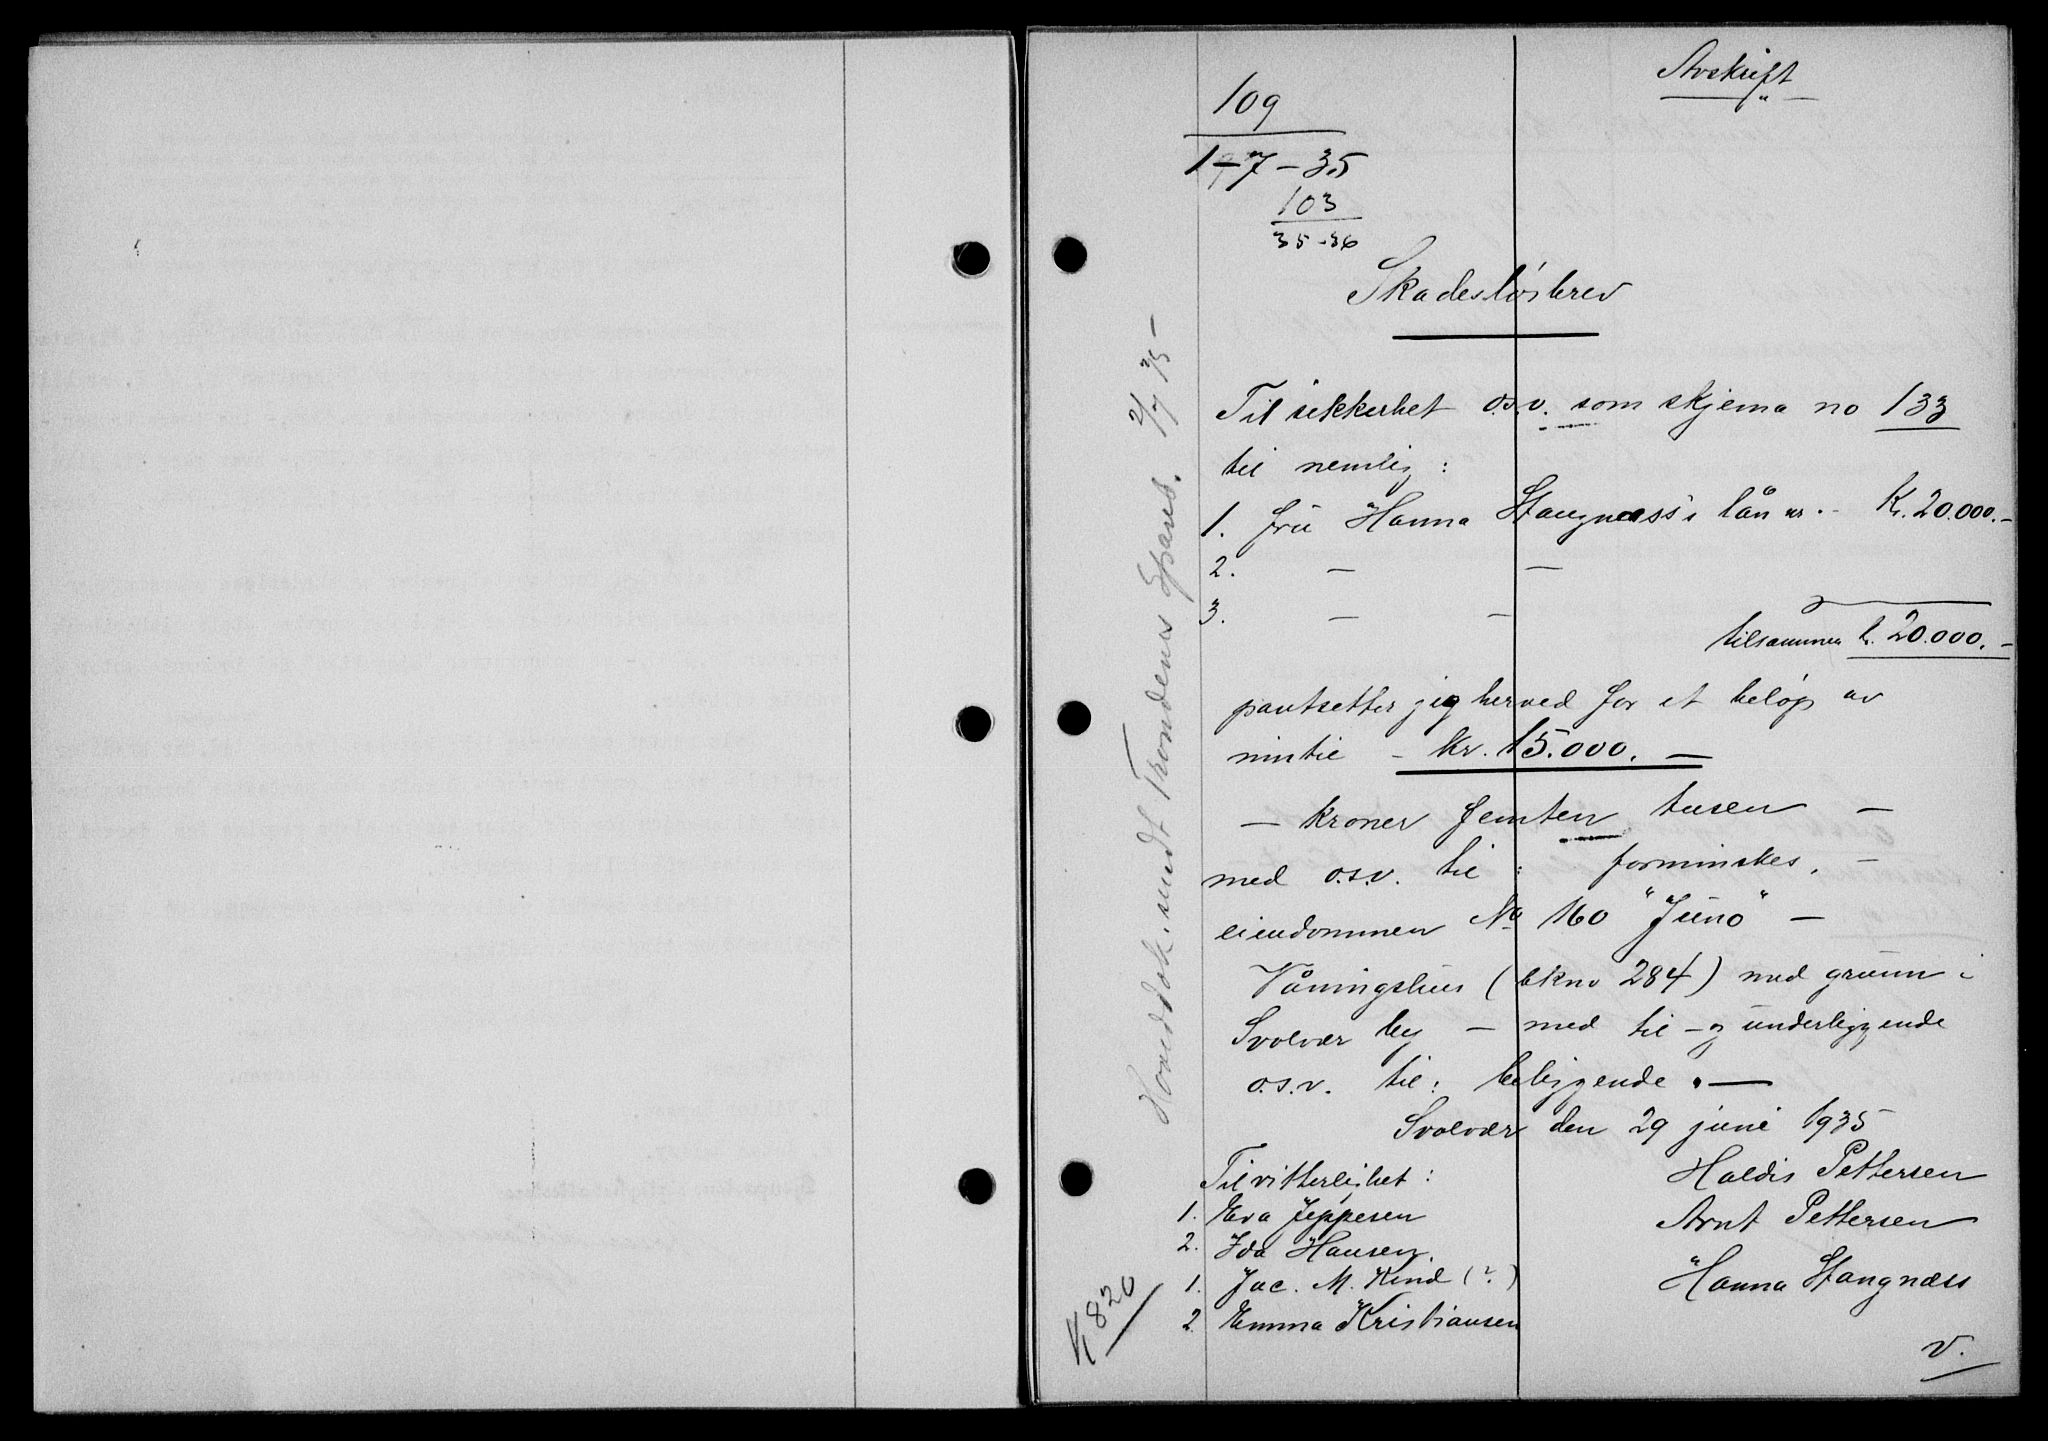 Avskrift
109
1-7-35
103
35-36
Skadesløsbrev
Til sikkerhet o.s.v. som skjema no 133
til nemlig:
1. fru Hanna Stangnæss's lån nr. - Kr. 20.000.-
2. — —
3. — —
tilsammen kr. 20.000.-
pantsetter jeg herved for et beløp av
inntil - Kr. 15.000. —
— kroner femten tusen —
med o.s.v. til: forminskes. —
eiendommen No 160 "Juno" —
Våningshus (bkno 284) med grunn i
Svolvær by — med til- og underliggende
o.s.v. til: beliggende. —
Svolvær den 29 juni 1935
Haldis Pettersen
Arnt Pettersen
Hanna Stangnæss
Til vitterlighet:
1. Eva Jeppesen
2. Ida Hansen.
1. Jac. M. Kind (?)
2. Emma Kristiansen
v.
Hoveddok. sendt Trondenes Spareb. 2/7 35 -
820